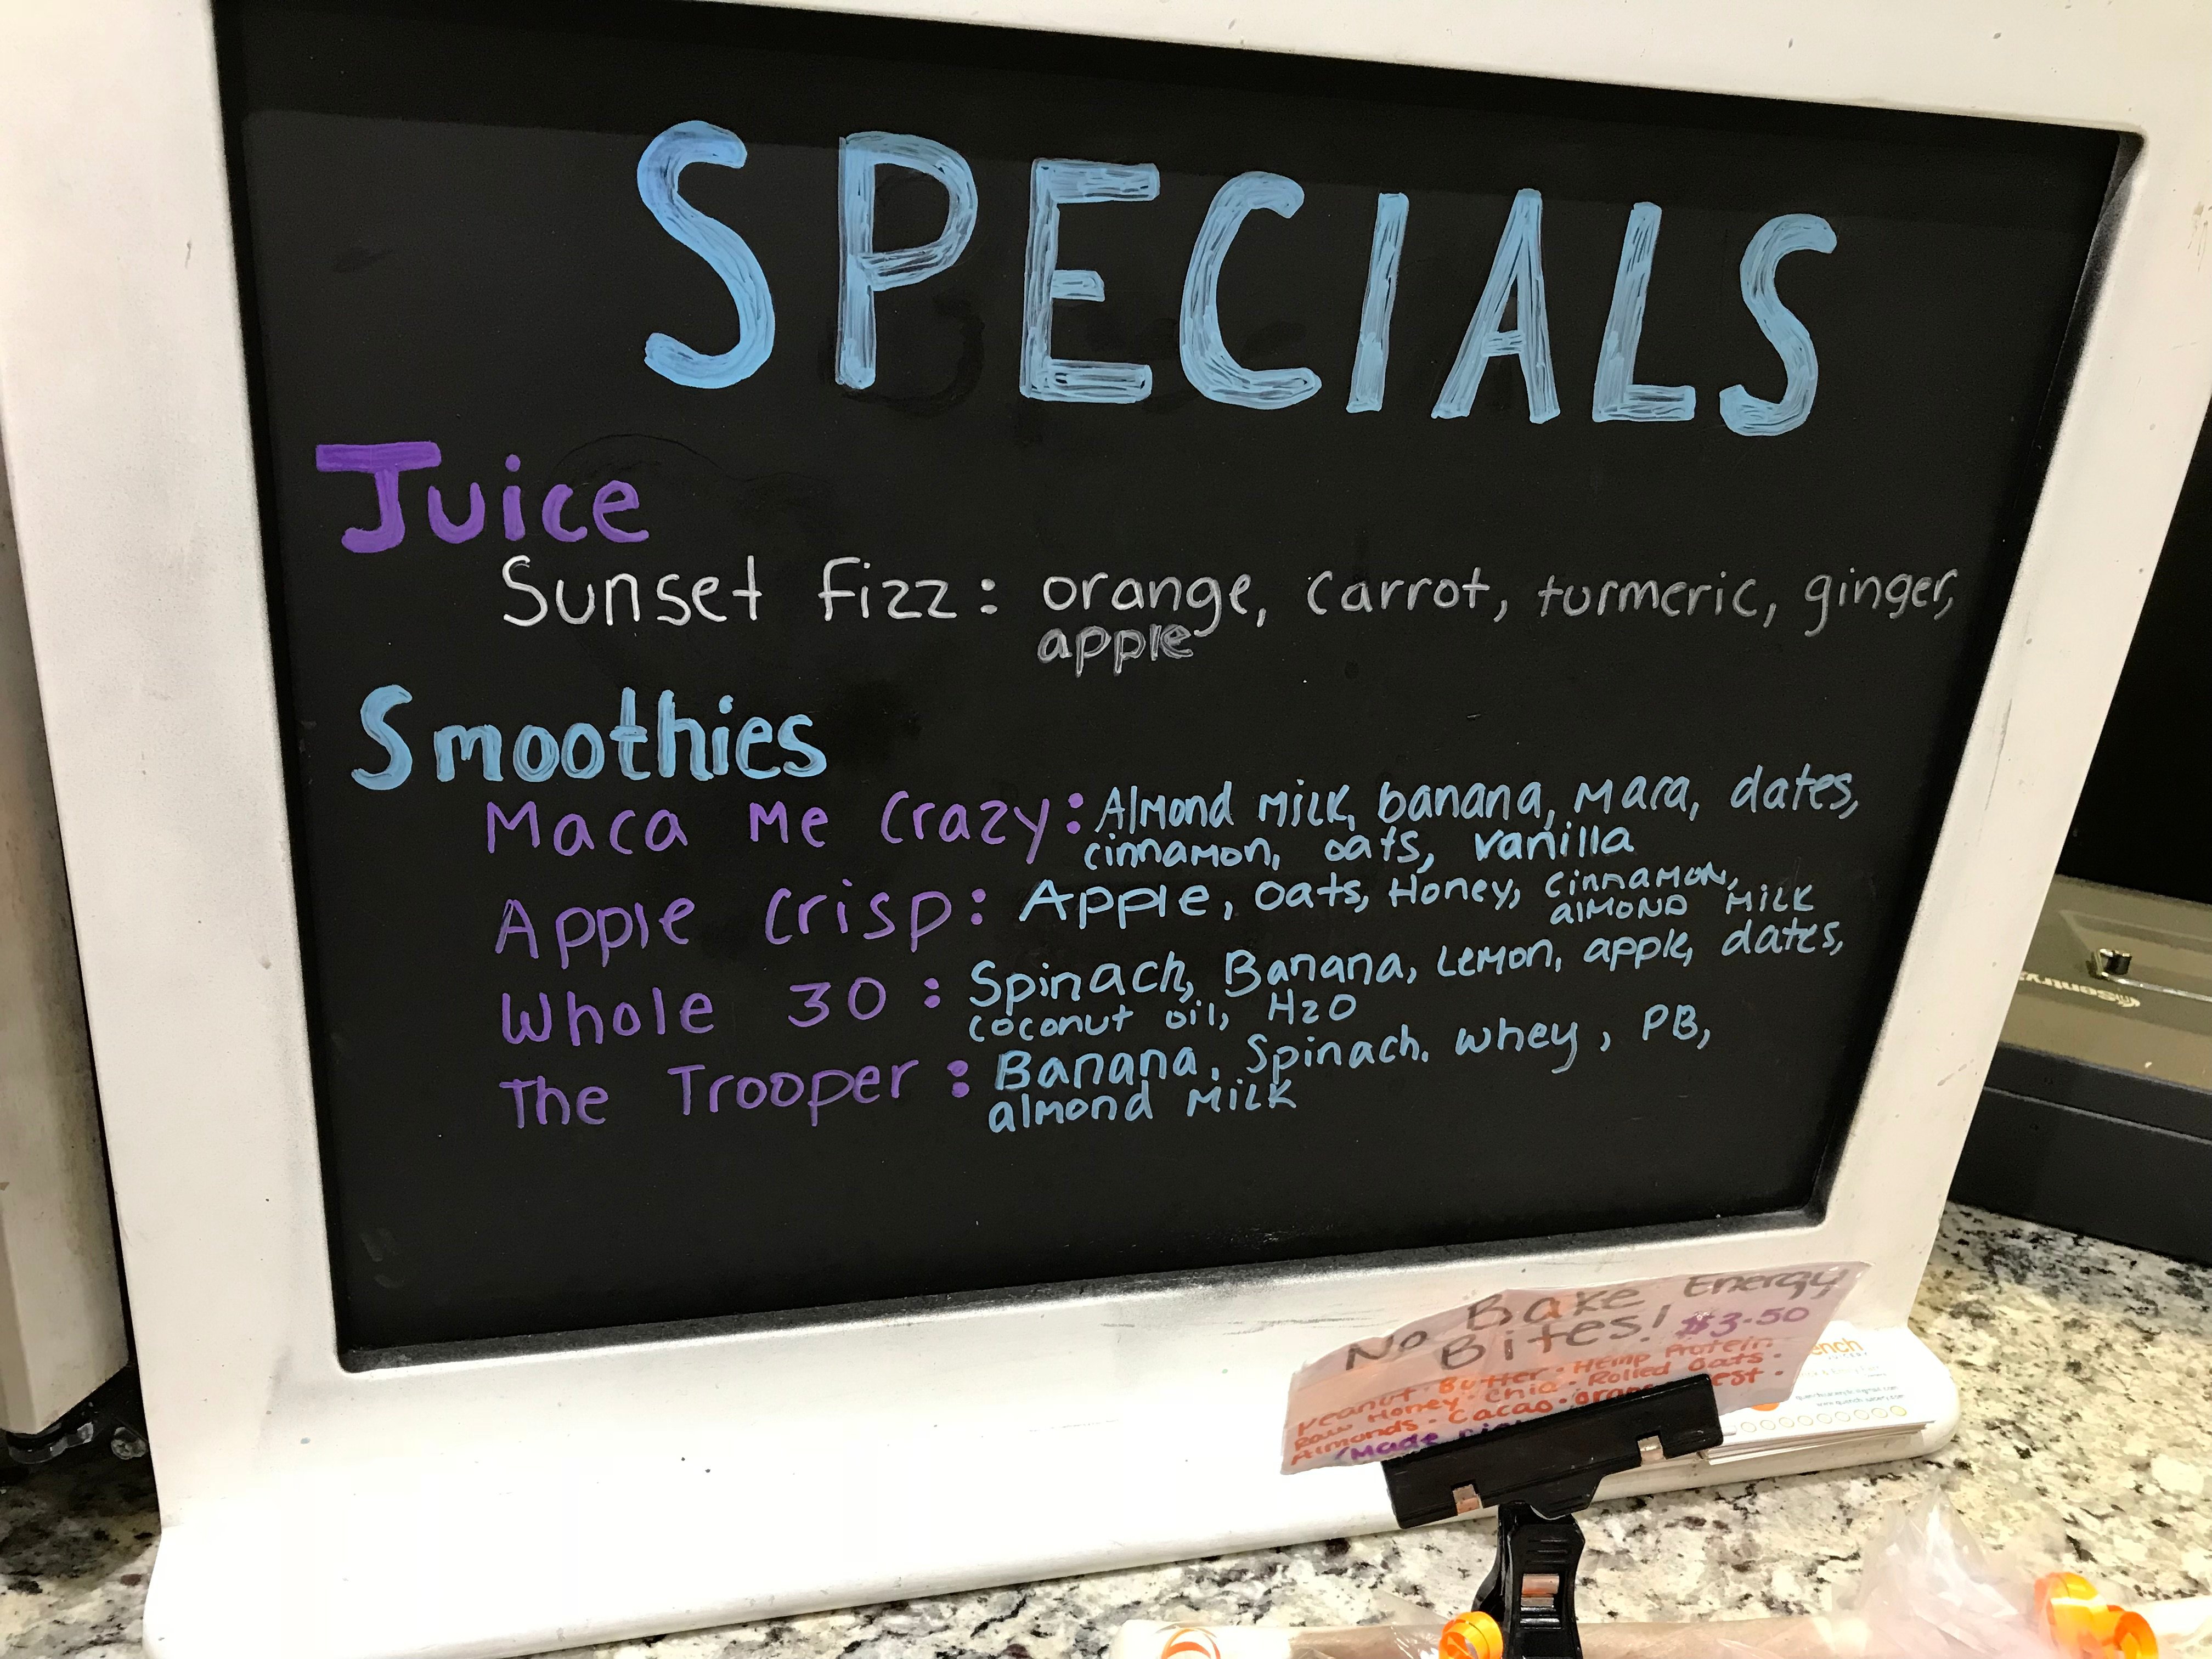 SPECIALS
Juice
Sunset Fizz: orange, carrot, turmeric, ginger,
apple
Smoothies
Maca Me Crazy: Almond Milk, banana, Maca, dates,
cinnamon, oats, vanilla
Apple Crisp: Apple, Oats, Honey, cinnamon,
almond milk
Whole 30: Spinach, Banana, Lemon, apple, dates,
coconut oil, H2O
The Trooper: Banana, Spinach. whey, PB,
almond milk
No Bake Energy
Bites! $3.50
Peanut Butter · Hemp Protein ·
Raw Honey · Chia · Rolled Oats ·
Almonds · Cacao ·
Made
Sentry